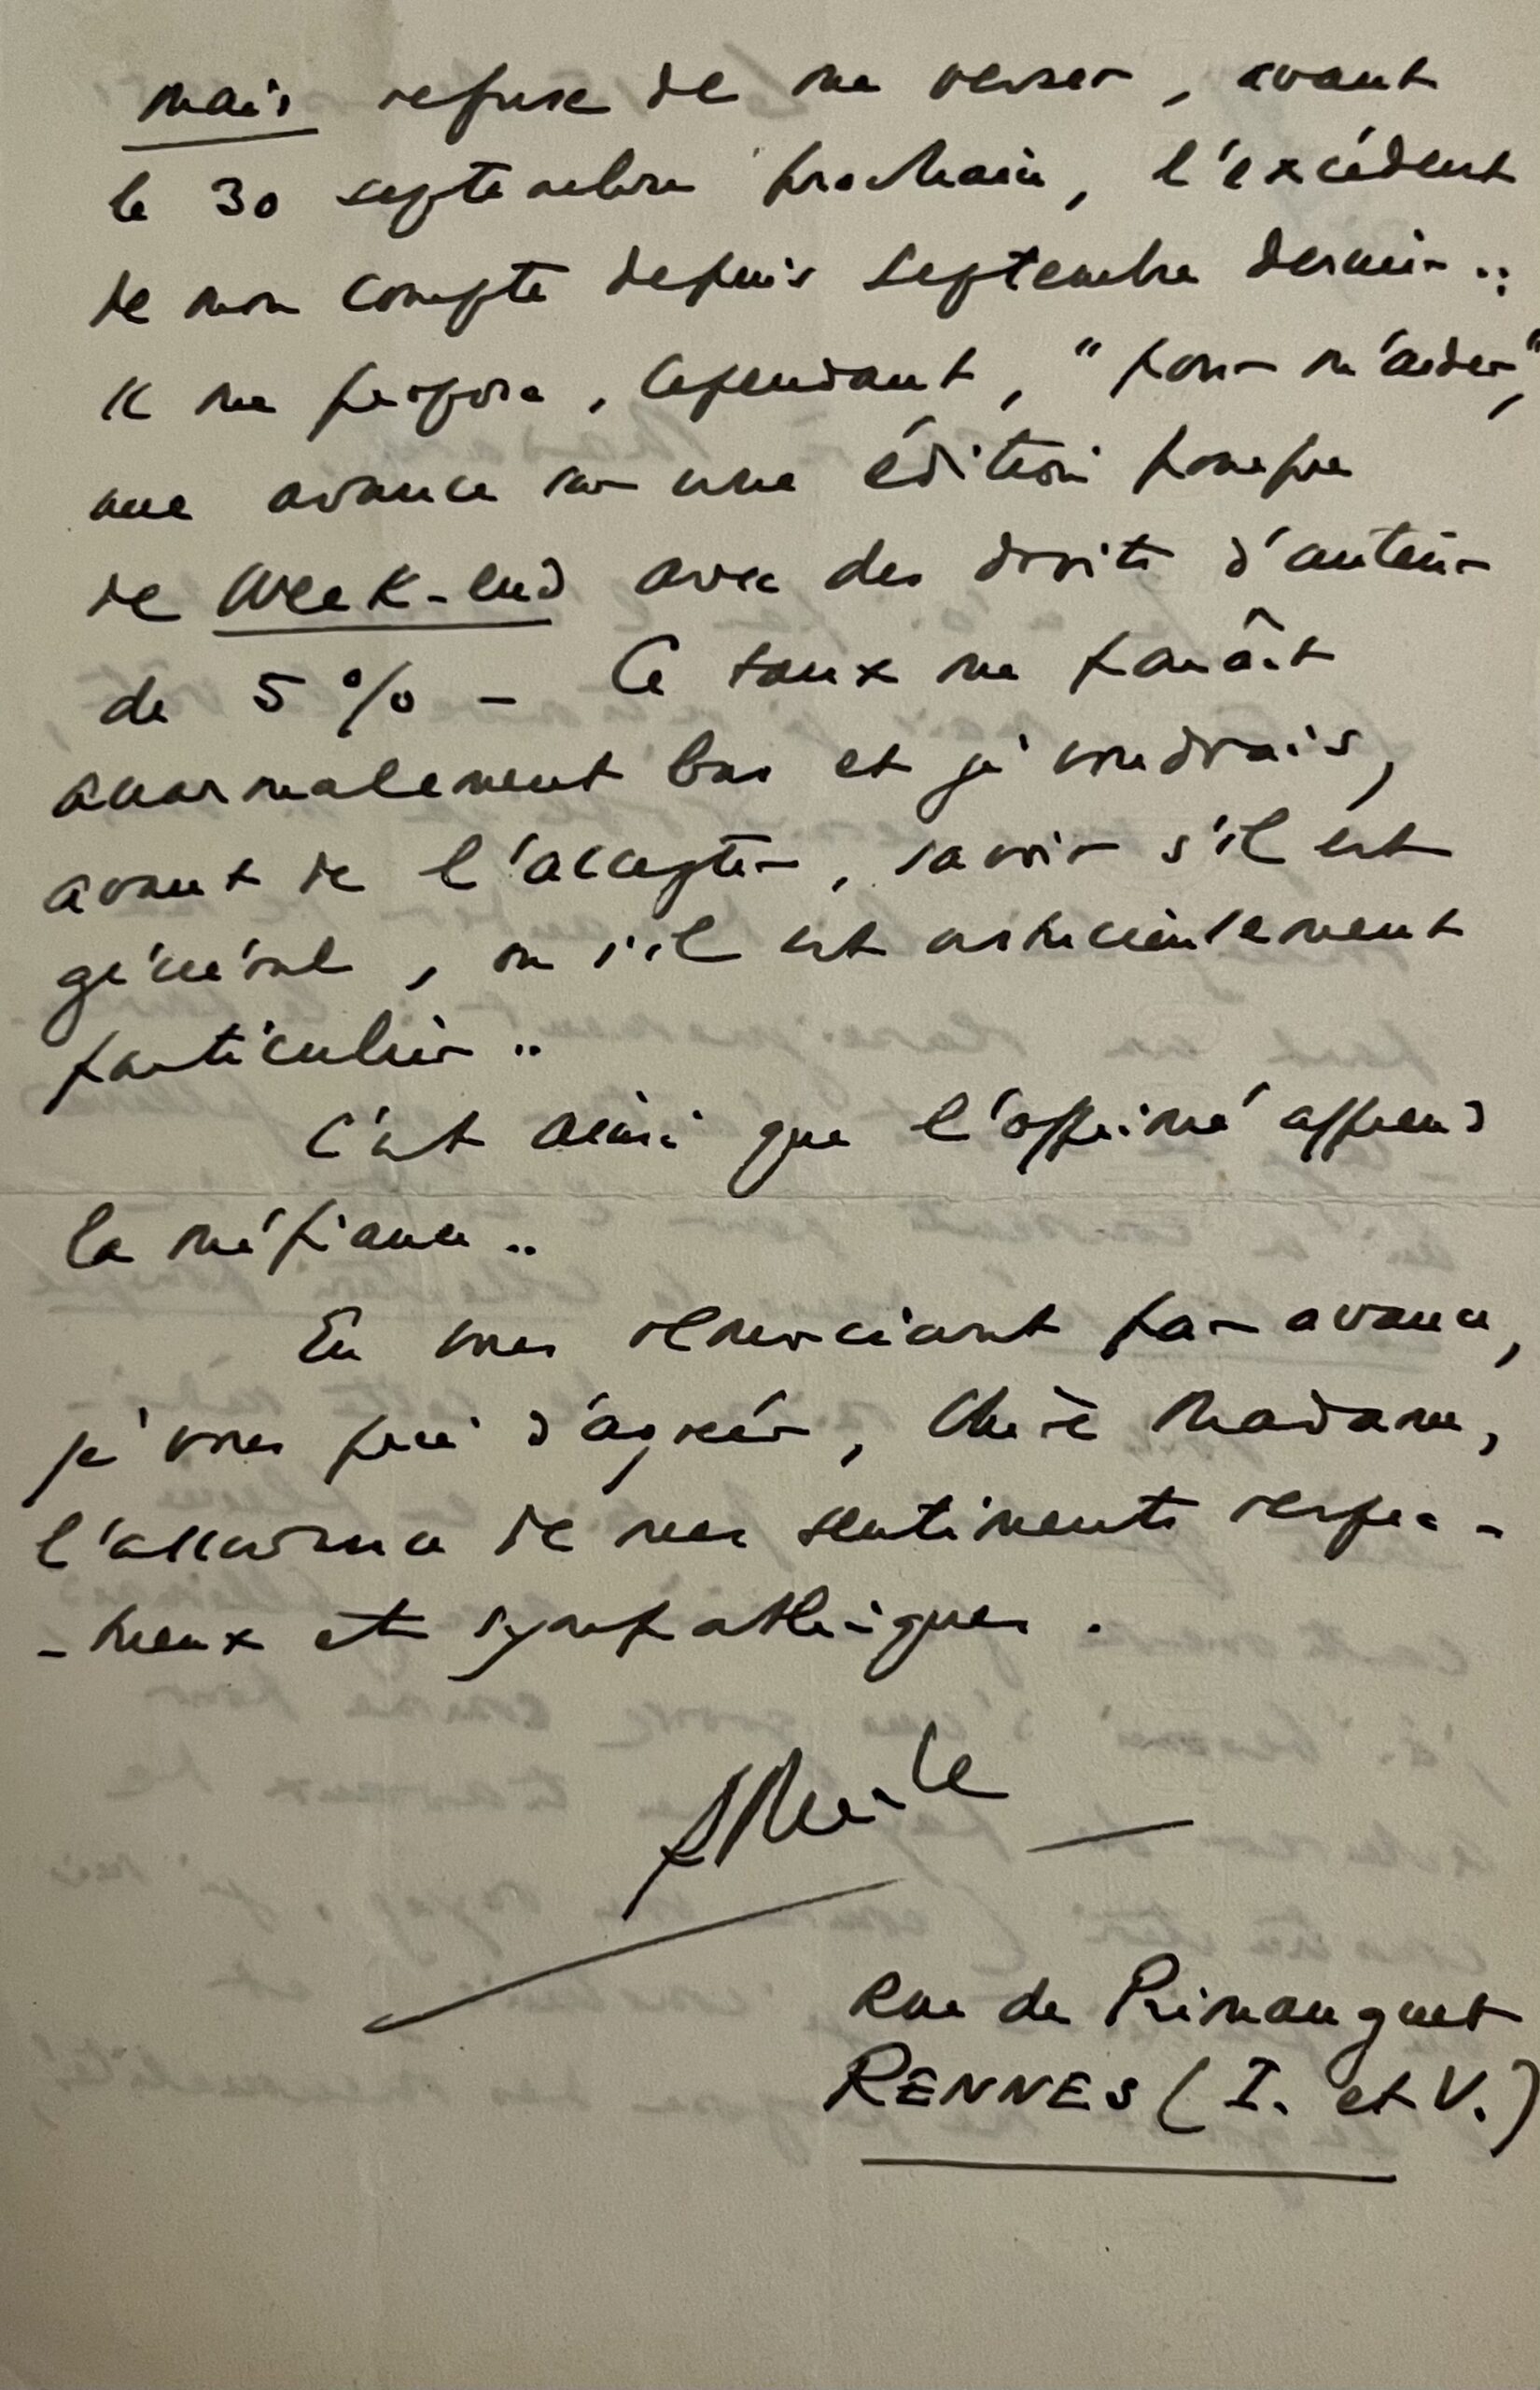 mais refuse de me verser, avant
le 30 septembre prochain, l'excédent
de mon compte depuis septembre dernier..
Il me propose, cependant, "pour m'aider",
une avance sur une édition pompée
de Week-end avec des droits d'auteur
de 5 % - Ce taux me paraît
anormalement bas et je voudrais,
avant de l'accepter, savoir s'il est
général, ou s'il est astucieusement
particulier..
C'est ainsi que l'opprimé apprend
la méfiance..
En vous remerciant par avance,
je vous prie d'agréer, Chère Madame,
l'assurance de mes sentiments respec-
-tueux et sympathiques.
Merle
Rue de Primauguet
RENNES (I. et V.)